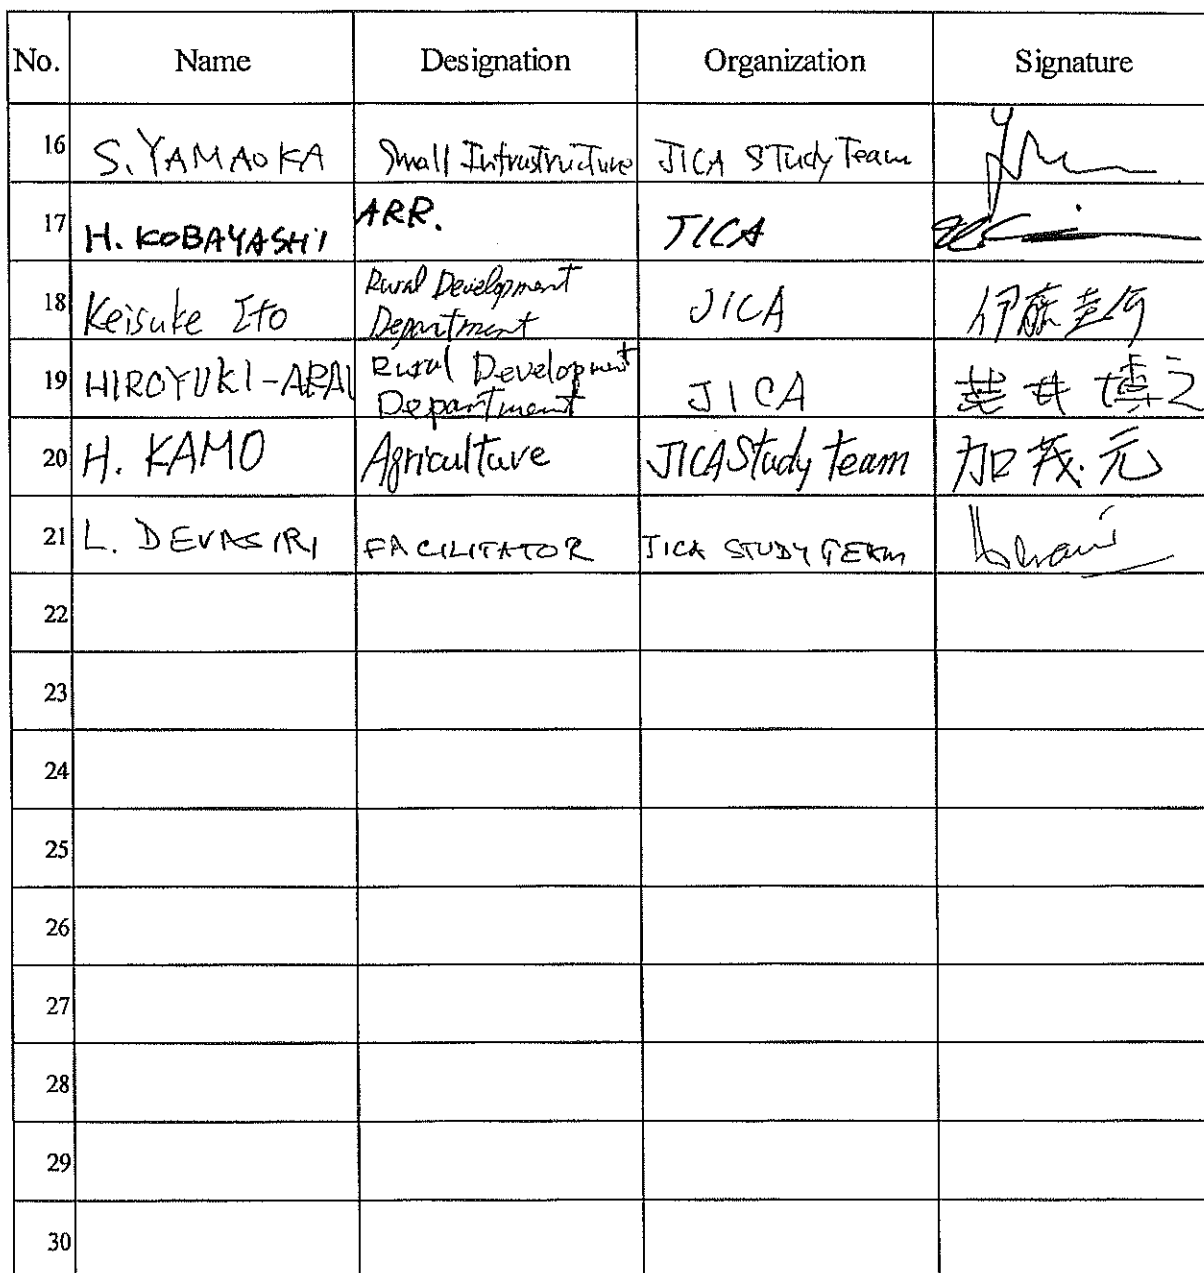 No. Name Designation Organization Signature
16 S. YAMAOKA Small Infrustructure JICA STudy Team
17 H. KOBAYASHI ARR. JICA
18 Keisuke Ito Rural Development Department JICA 伊藤圭介
19 HIROYUKI-ARAI Rural Development Department JICA 荒井博之
20 H. KAMO Agriculture JICA Study team 加茂元
21 L. DEVASIRI FACILITATOR JICA STUDY TEAM
22
23
24
25
26
27
28
29
30